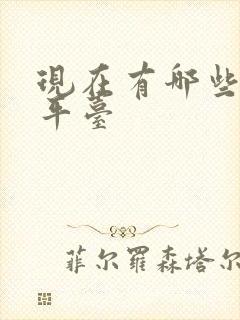 現在有哪些
平臺
菲尔羅森塔尔